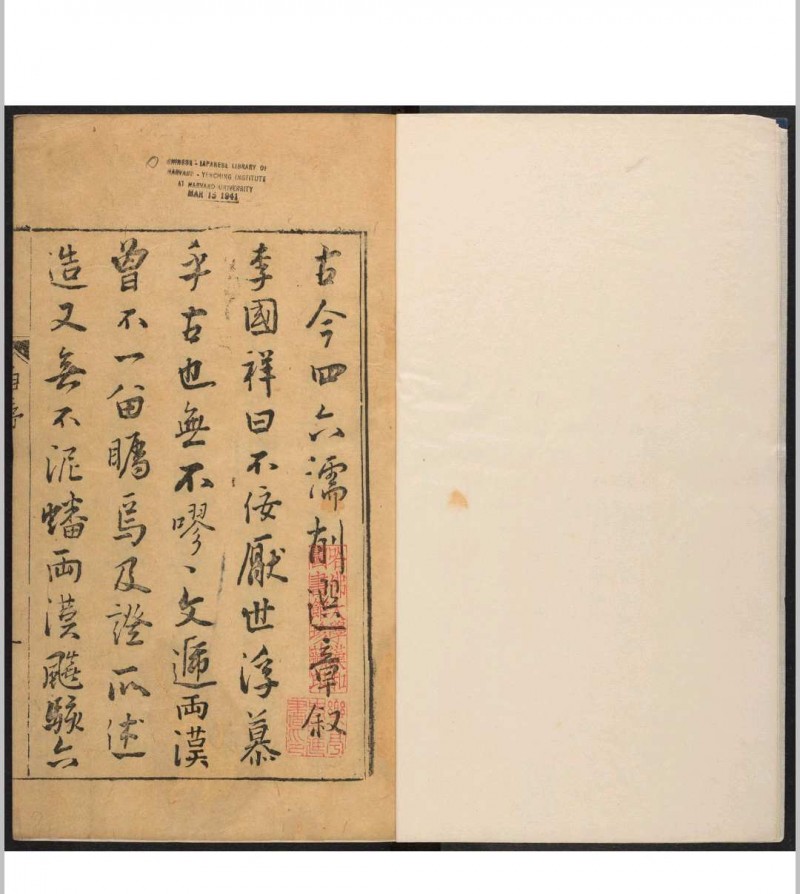 CHINESE - JAPANESE LIBRARY OF
HARVARD - YENCHING INSTITUTE
AT HARVARD UNIVERSITY
MAR 15 1941
古今四六濡削選章叙
李國祥曰不佞厭世浮慕
乎古也無不嘐丶文遞兩漢
曾不一留矚焉及證所述
造又無不泥蟠兩漢飈駭六
自序